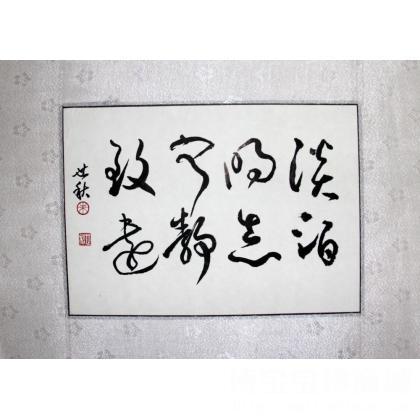 淡泊
明志
宁静
致远
世秋